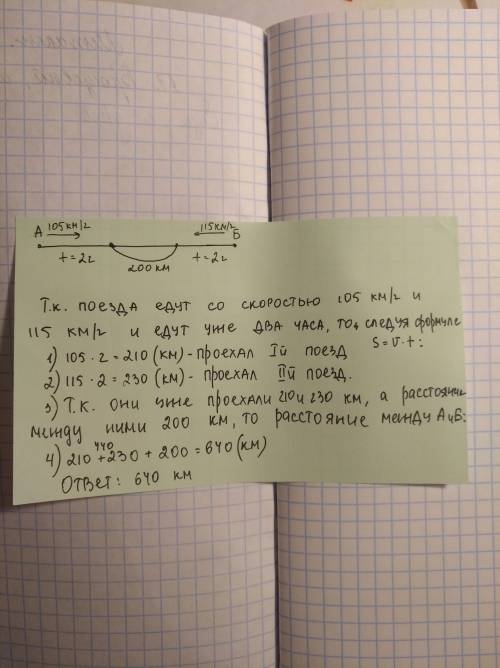 А 105 км/г 115 км/г Б
t=2г 200 км t=2г
Т.к. поезда едут со скоростью 105 км/г и
115 км/г и едут уже два часа, то, следуя формуле
S=v·t:
1) 105·2=210 (км)-проехал Iй поезд
2) 115·2=230 (км)-проехал IIй поезд.
3) Т.к. они уже проехали 210 и 230 км, а расстояние
между ними 200 км, то расстояние между А и Б:
440
4) 210+230+200=640 (км)
Ответ: 640 км